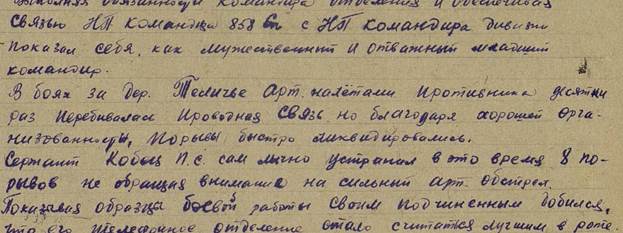 Выполняя обязанности командира отделения и обеспечивая
связью НП командира 858 сп с НП командира дивизии
показал себя, как мужественный и отважный младший
командир.
В боях за дер. Теличье арт. налетами противника десятки
раз перебивалась проводная связь но благодаря хорошей орга-
низованности, порывы быстро ликвидировались.
Сержант Кобыц П.С. сам лично устранил в это время 8 по-
рывов не обращая внимание на сильный арт. обстрел.
Показывая образцы боевой работы своим подчиненным добился,
что его телефонное отделение стало считаться лучшим в роте.